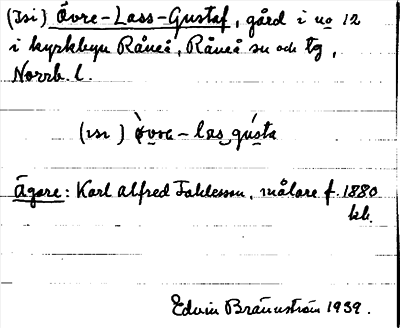 (Isi) Övre-Lass-Gustaf, gård i no 12
i kyrkbyn Råneå, Råneå sn och tg,
Norrb. l.
(ısı) övre-las gusta
Ägare: Karl Alfred Fahlesson, målare f. 1880
kb.
Edvin Brännström 1939.